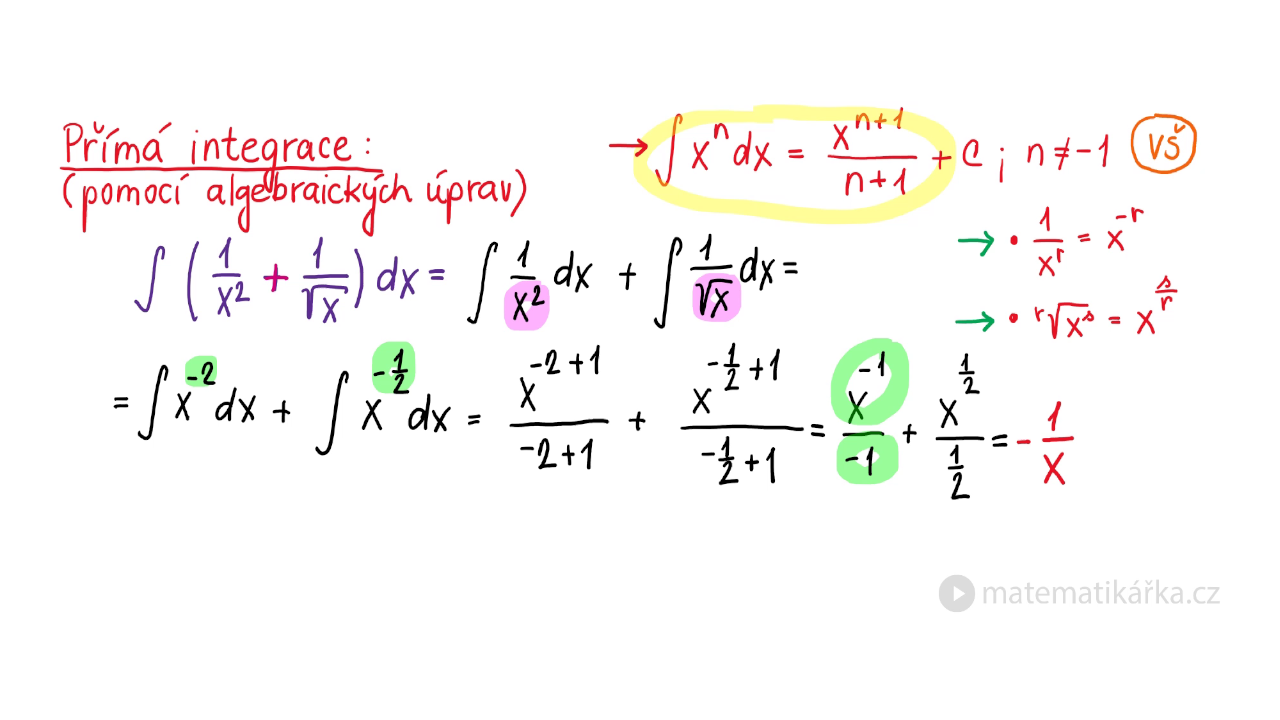 Přímá integrace:
(pomocí algebraických úprav)
→ ∫ xⁿ dx = xⁿ⁺¹/(n+1) + C ; n ≠ -1
VŠ
→ • 1/xʳ = x⁻ʳ
→ • ʳ√xˢ = x^(s/r)
∫ (1/x² + 1/√x) dx = ∫ 1/x² dx + ∫ 1/√x dx =
= ∫ x⁻² dx + ∫ x^(-1/2) dx = x^(-2+1)/(-2+1) + x^(-1/2+1)/(-1/2+1) = x⁻¹/-1 + x^(1/2)/(1/2) = - 1/x
matematikářka.cz